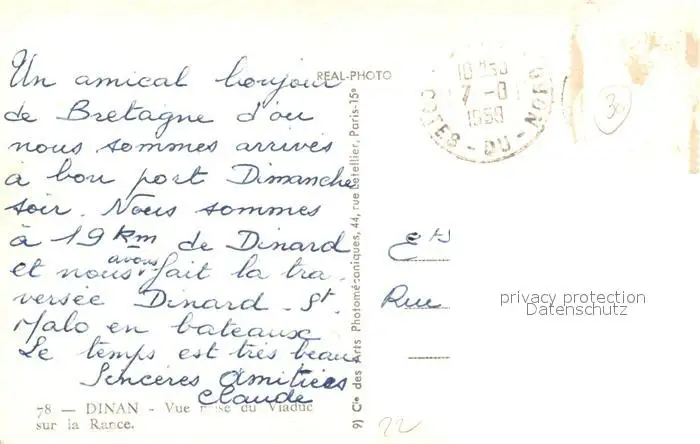 Un amical bonjour
de Bretagne d'ou
nous sommes arrivés
à bon port Dimanche
soir. Nous sommes
à 19 km de Dinard
et nous avons fait la tra-
versée Dinard - St
Malo en bateaux
Le temps est très beau
Sincères Amitiées
Claude
78 — DINAN - Vue du Viaduc
sur la Rance.
REAL-PHOTO
9) Cie des Arts Photomécaniques, 44, rue Letellier, Paris-15e
COTES-DU-NORD
30
Ets
Rue
privacy protection
Datenschutz
22